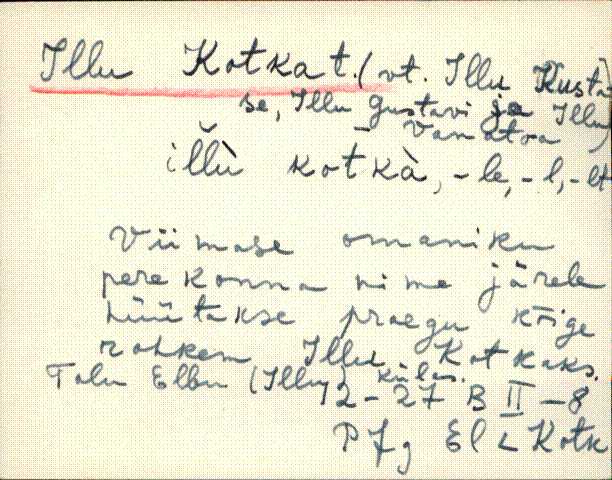 Illu Kotka t. (vt. Illu Kusta
se, Illu Gustavi ja Illu
Vanatoa)
illù kotkà, -le, -l, -lt
Viimase omaniku
perekonna nime järele
hüütakse praegu kõige
rohkem Illu Kotkaks.
Talu Ellu (Illu) külas.
12-27 B II-8
PJg El < Kotk